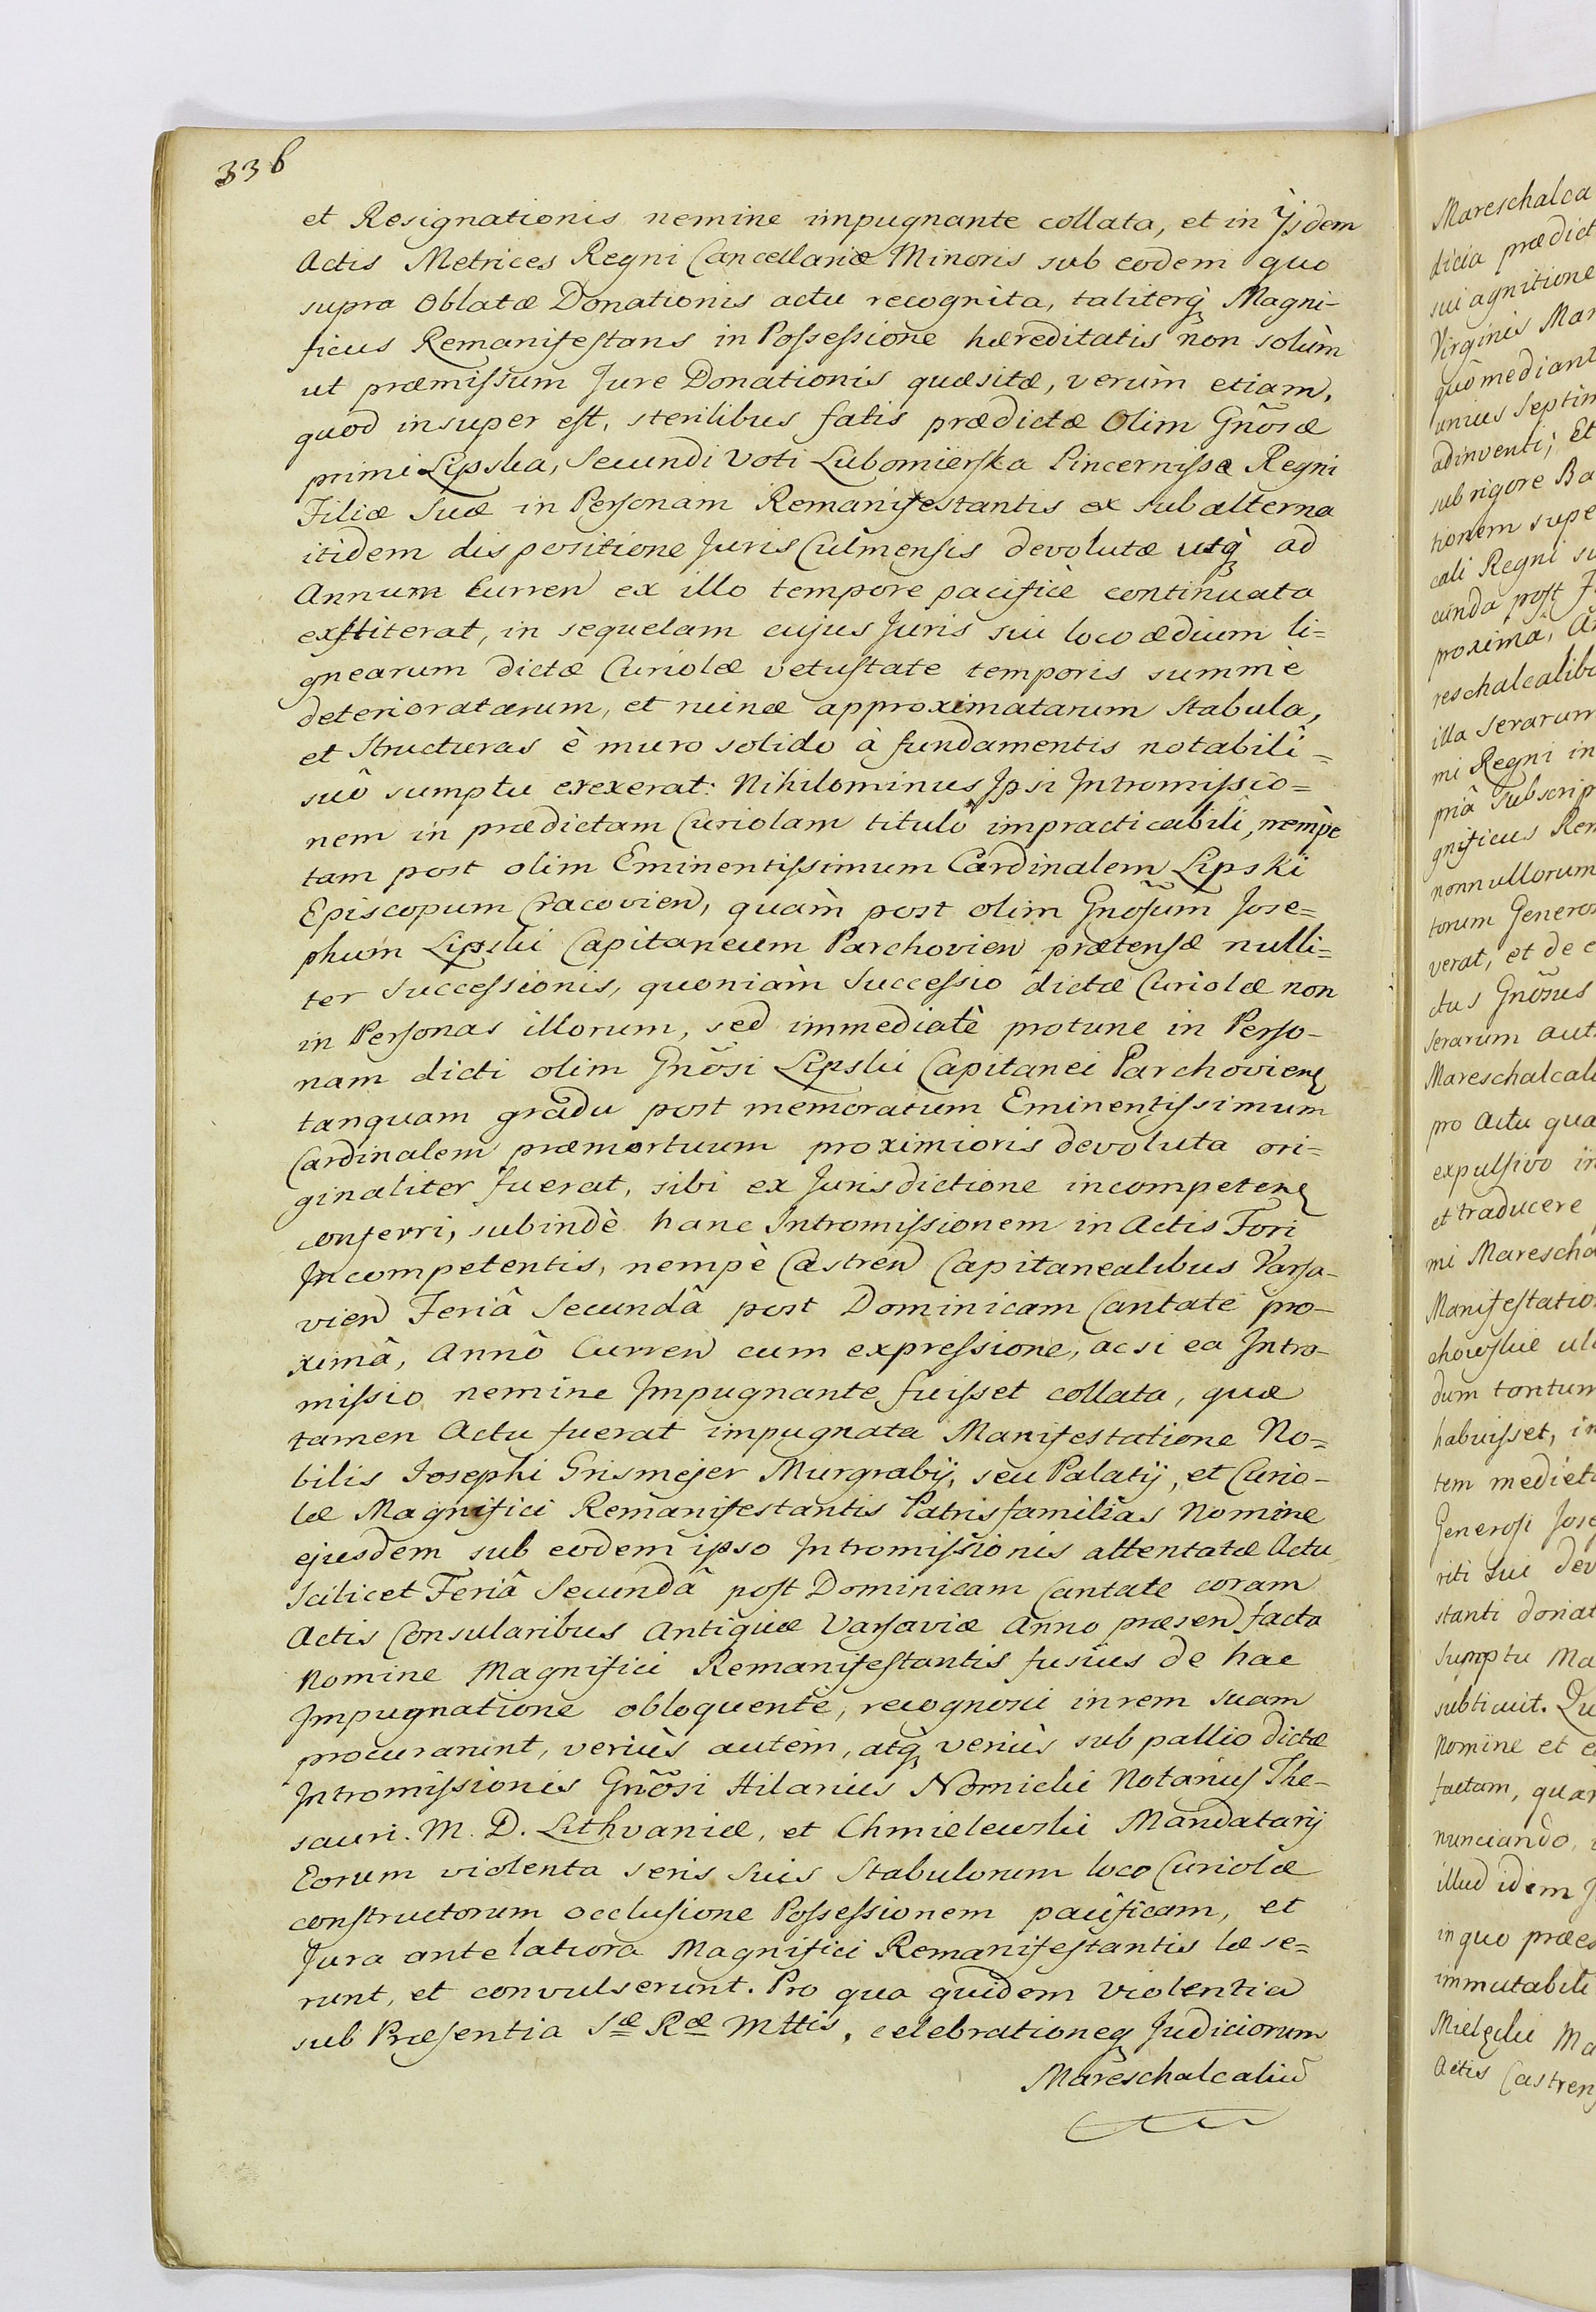 336
et Resignationis nemine impugnante collata, et in Ijsdem
Actis Metrices Regni Cancellariæ Minoris sub eodem quo
supra Oblatæ Donationis actu recognita, taliterq; Magni-
ficus Remanifestans in Possessione hæreditatis non solùm
ut præmissum Jure Donationis quæsitæ, verùm etiam,
quod insuper est, sterilibus fatis prædictæ Olim Gñosæ
primi Lipska, Secundi Voti Lubomierska Pincernissæ Regni
Filiæ Suæ in Personam Remanifestantis ex subalterna
itidem dispositione Juris Culmensis devolutæ usq; ad
Annum Curren ex illo tempore pacificè continuata
exstiterat, in sequelam cujus Juris sui loco ædium li=
gnearum dictæ Curiolæ vetustate temporis summè
deterioratarum, et ruinæ approximatarum Stabula,
et Structuras è muro solido à fundamentis notabili=
suô sumptu erexerat: Nihilominus Ipsi Intromissio=
nem in prædictam Curiolam titulô impracticabili, nempè
tam post olim Eminentissimum Cardinalem Lipski
Episcopum Cracovien, quàm post olim Gnosum Jose=
phum Lipski Capitaneum Parchovien prætensæ nulli=
ter Successionis, quoniàm Successio dictæ Curiolæ non
in Personas illorum, sed immediatè protunc in Perso-
nam dicti olim Gñosi Lipski Capitanei Parchovien
tanquam gradu post memoratum Eminentissimum
Cardinalem præmortuum proximioris devoluta ori=
ginaliter fuerat, sibi ex Jurisdictione incompeten
conferri, subindè hanc Intromissionem in Actis Fori
Incompetentis, nempè Castren Capitanealibus Varsa-
vien Feriâ Secundâ post Dominicam Cantate pro-
ximâ, Annô Curren cum expressione, acsi ea Intro-
missio nemine Impugnante fuisset collata, quæ
tamen Actu fuerat impugnata Manifestatione No=
bilis Josephi Grismejer Murgrabij, seu Palatij, et Curio-
læ Magnifici Remanifestantis Patrisfamilias Nomine
ejusdem sub eodem ipso Intromissionis attentatæ Actu
Scilicet Feriâ Secundâ post Dominicam Cantate coram
Actis Consularibus Antiquæ Varsaviæ Anno præsen facta
Nomine Magnifici Remanifestantis fusius de hac
Impugnatione obloquente, recognosci in rem suam
procurarunt, veriùs autem, atq; veriùs sub pallio dictæ
Intromissionis Gñosi Hilarius Nornicki Notarius The-
sauri. M. D. Lithvaniæ, et Chmielewski Mandatarij
Eorum violenta seris suis Stabulorum loco Curiolæ
constructorum occlusione Possessionem pacificam, et
Jura antelatiora Magnifici Remanifestantis læse=
runt, et convulserunt. Pro qua quidem violentia
sub Præsentia Sæ Ræ Mttis, celebrationeq; Judiciorum
Mareschalcaliu
Mareschalca
dicia prædict
sui agnitione
Virginis Mar
quô mediant
unius Septim
adinventi; Et
sub rigore Ba
tionem supe
cali Regni su
cunda post F
proximâ, A
reschalcalibu
illa Serarum
mi Regni in
priâ Subscrip
gnificus Rem
nonnullorum
torum Generos
verat, et de e
ctus Gñosus
Serarum aut
Mareschalcali
pro Actu qua
expulsivo in
et traducere
mi Marescha
Manifestatio
chowskie ul
dum tantum
habuisset, in
tem medieta
Generosi Jose
riti Sui dev
stanti donat
Sumptu Ma
subticuit. Qu
Nomine et e
factam, quàm
nunciando,
illud idem J
in quo præe
immutabili
Mielzcki Ma
Actis Castren